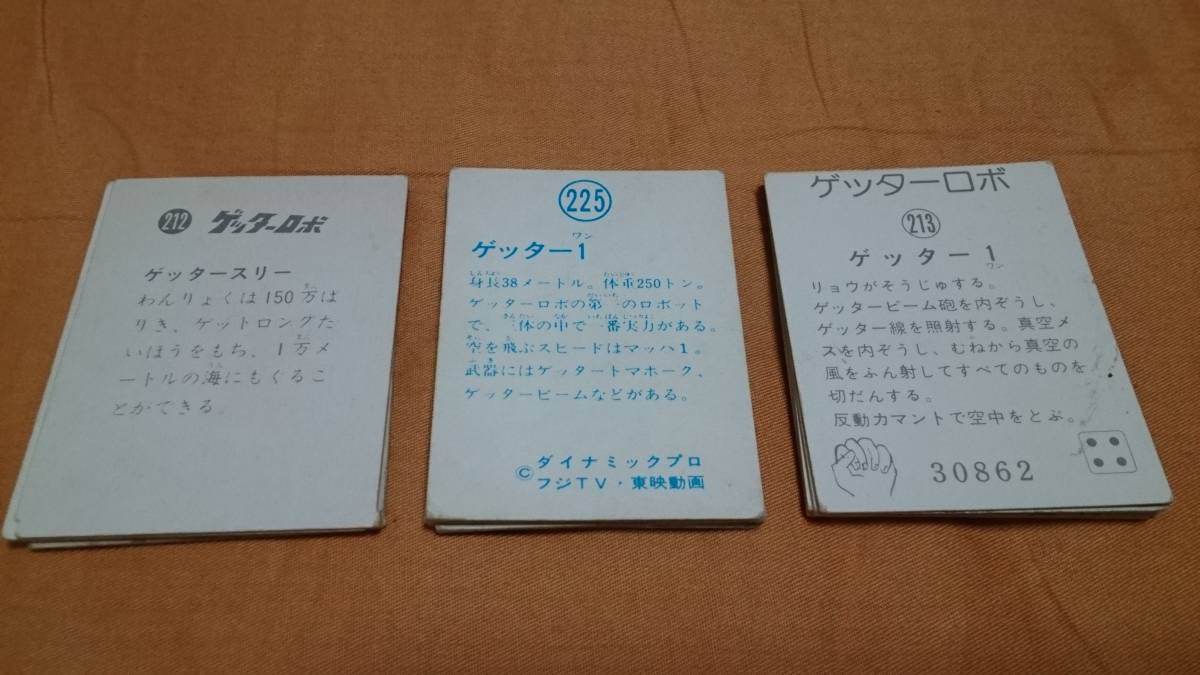 212 ゲッターロボ
ゲッタースリー
わんりょくは150万ば
りき、ゲットロングた
いほうをもち、1万メ
ートルの海にもぐるこ
とができる。
225
ゲッター1
ワン
身長38メートル。体重250トン。
ゲッターロボの第一のロボット
で、三体の中で一番実力がある。
空を飛ぶスピードはマッハ1。
武器にはゲッタートマホーク、
ゲッタービームなどがある。
©ダイナミックプロ
フジTV・東映動画
ゲッターロボ
213
ゲッター1
ワン
リョウがそうじゅする。
ゲッタービーム砲を内ぞうし、
ゲッター線を照射する。真空メ
スを内ぞうし、むねから真空の
風をふん射してすべてのものを
切だんする。
反動力マントで空中をとぶ。
30862